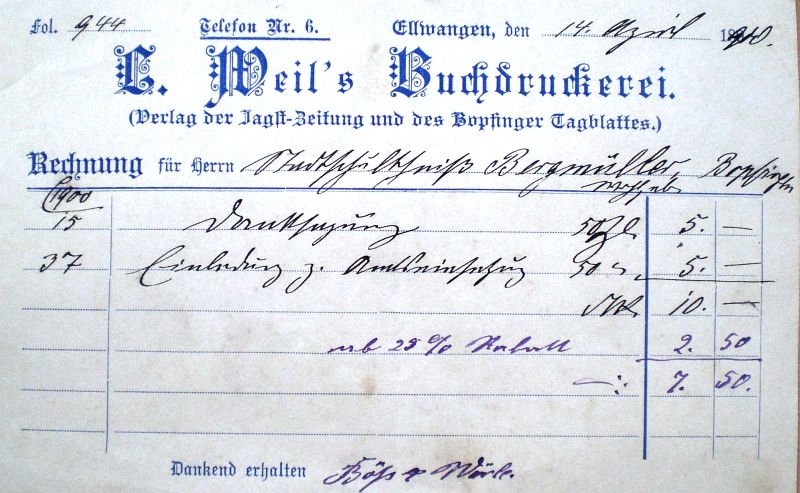 Fol. 944 Telefon Nr. 6. Ellwangen, den 14. April 1900.
L. Weil's Buchdruckerei.
(Verlag der Jagst-Zeitung und des Bopfinger Tagblattes.)
Rechnung für Herrn Stadtschultheiß Bergmüller, Bopfingen
1900
15 Danksagung 50 Zl 5. —
37 Einladung z. Amtseinsetzug 50 " 5. —
Mk 10. —
ab 25 % Rabatt 2. 50
—: 7. 50.
Dankend erhalten